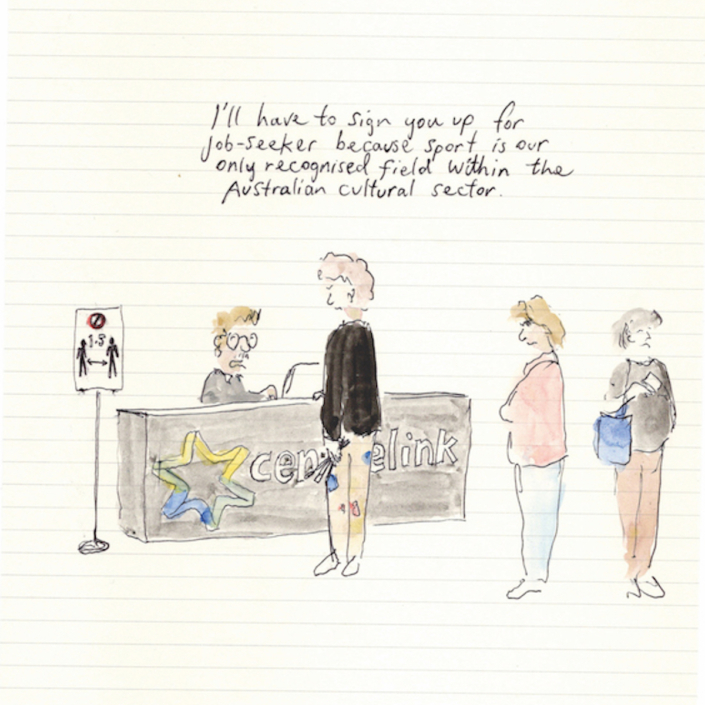 I'll have to sign you up for
job-seeker because sport is our
only recognised field within the
Australian cultural sector.
1.5
cen elink